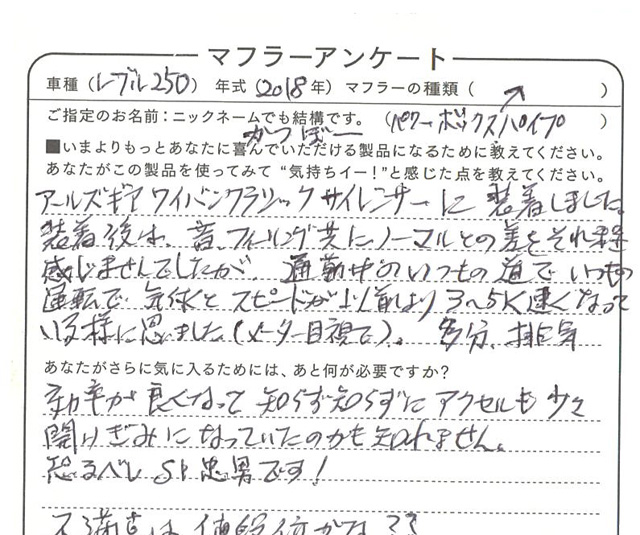 マフラーアンケート
車種（レブル250） 年式（2018年）マフラーの種類（↗）
ご指定のお名前：ニックネームでも結構です。（パワーボックスパイプ）
がっぽー
■いまよりもっとあなたに喜んでいただける製品になるために教えてください。
あなたがこの製品を使ってみて“気持ちイー！”と感じた点を教えてください。
アールズギア ワイバンクラシックサイレンサーに装着しました。
装着後は、音、フィーリング共にノーマルとの差をそれ程
感じませんでしたが、通勤中のいつもの道でいつもの
運転で気休スピードが以前より3〜5K速くなって
いる様に思いました（メーター目視で）。多分、排気
あなたがさらに気に入るためには、あと何が必要ですか？
効率が良くなって知らず知らずにアクセルも少々
開けぎみになっていたのかも知れません。
恐るべしSP忠男です！
不満点は値段位かな??